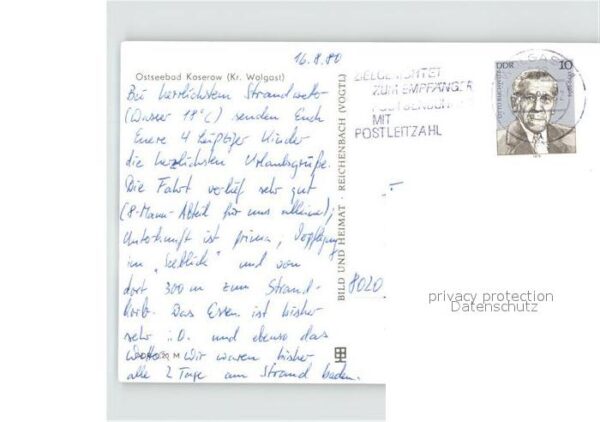 16.8.80
Ostseebad Koserow (Kr. Wolgast)
Bei herrlichstem Strandwetter
(Wasser 19°C) senden Euch
Euere 4 Leipziger Kinder
die herzlichsten Urlaubsgrüße.
Die Fahrt verlief sehr gut
(8-Mann-Abteil für uns alleine);
Unterkunft ist prima, Verpflegung
im "Seeblick" und von
dort 300 m zum Strand-
korb. Das Essen ist bisher
sehr i.O. und ebenso das
Wetter. Wir waren bisher
alle 2 Tage am Strand baden.
M
BILD UND HEIMAT · REICHENBACH (VOGTL)
ZUM EMPFÄNGER
MIT
POSTLEITZAHL
DDR 10
8020
privacy protection
Datenschutz